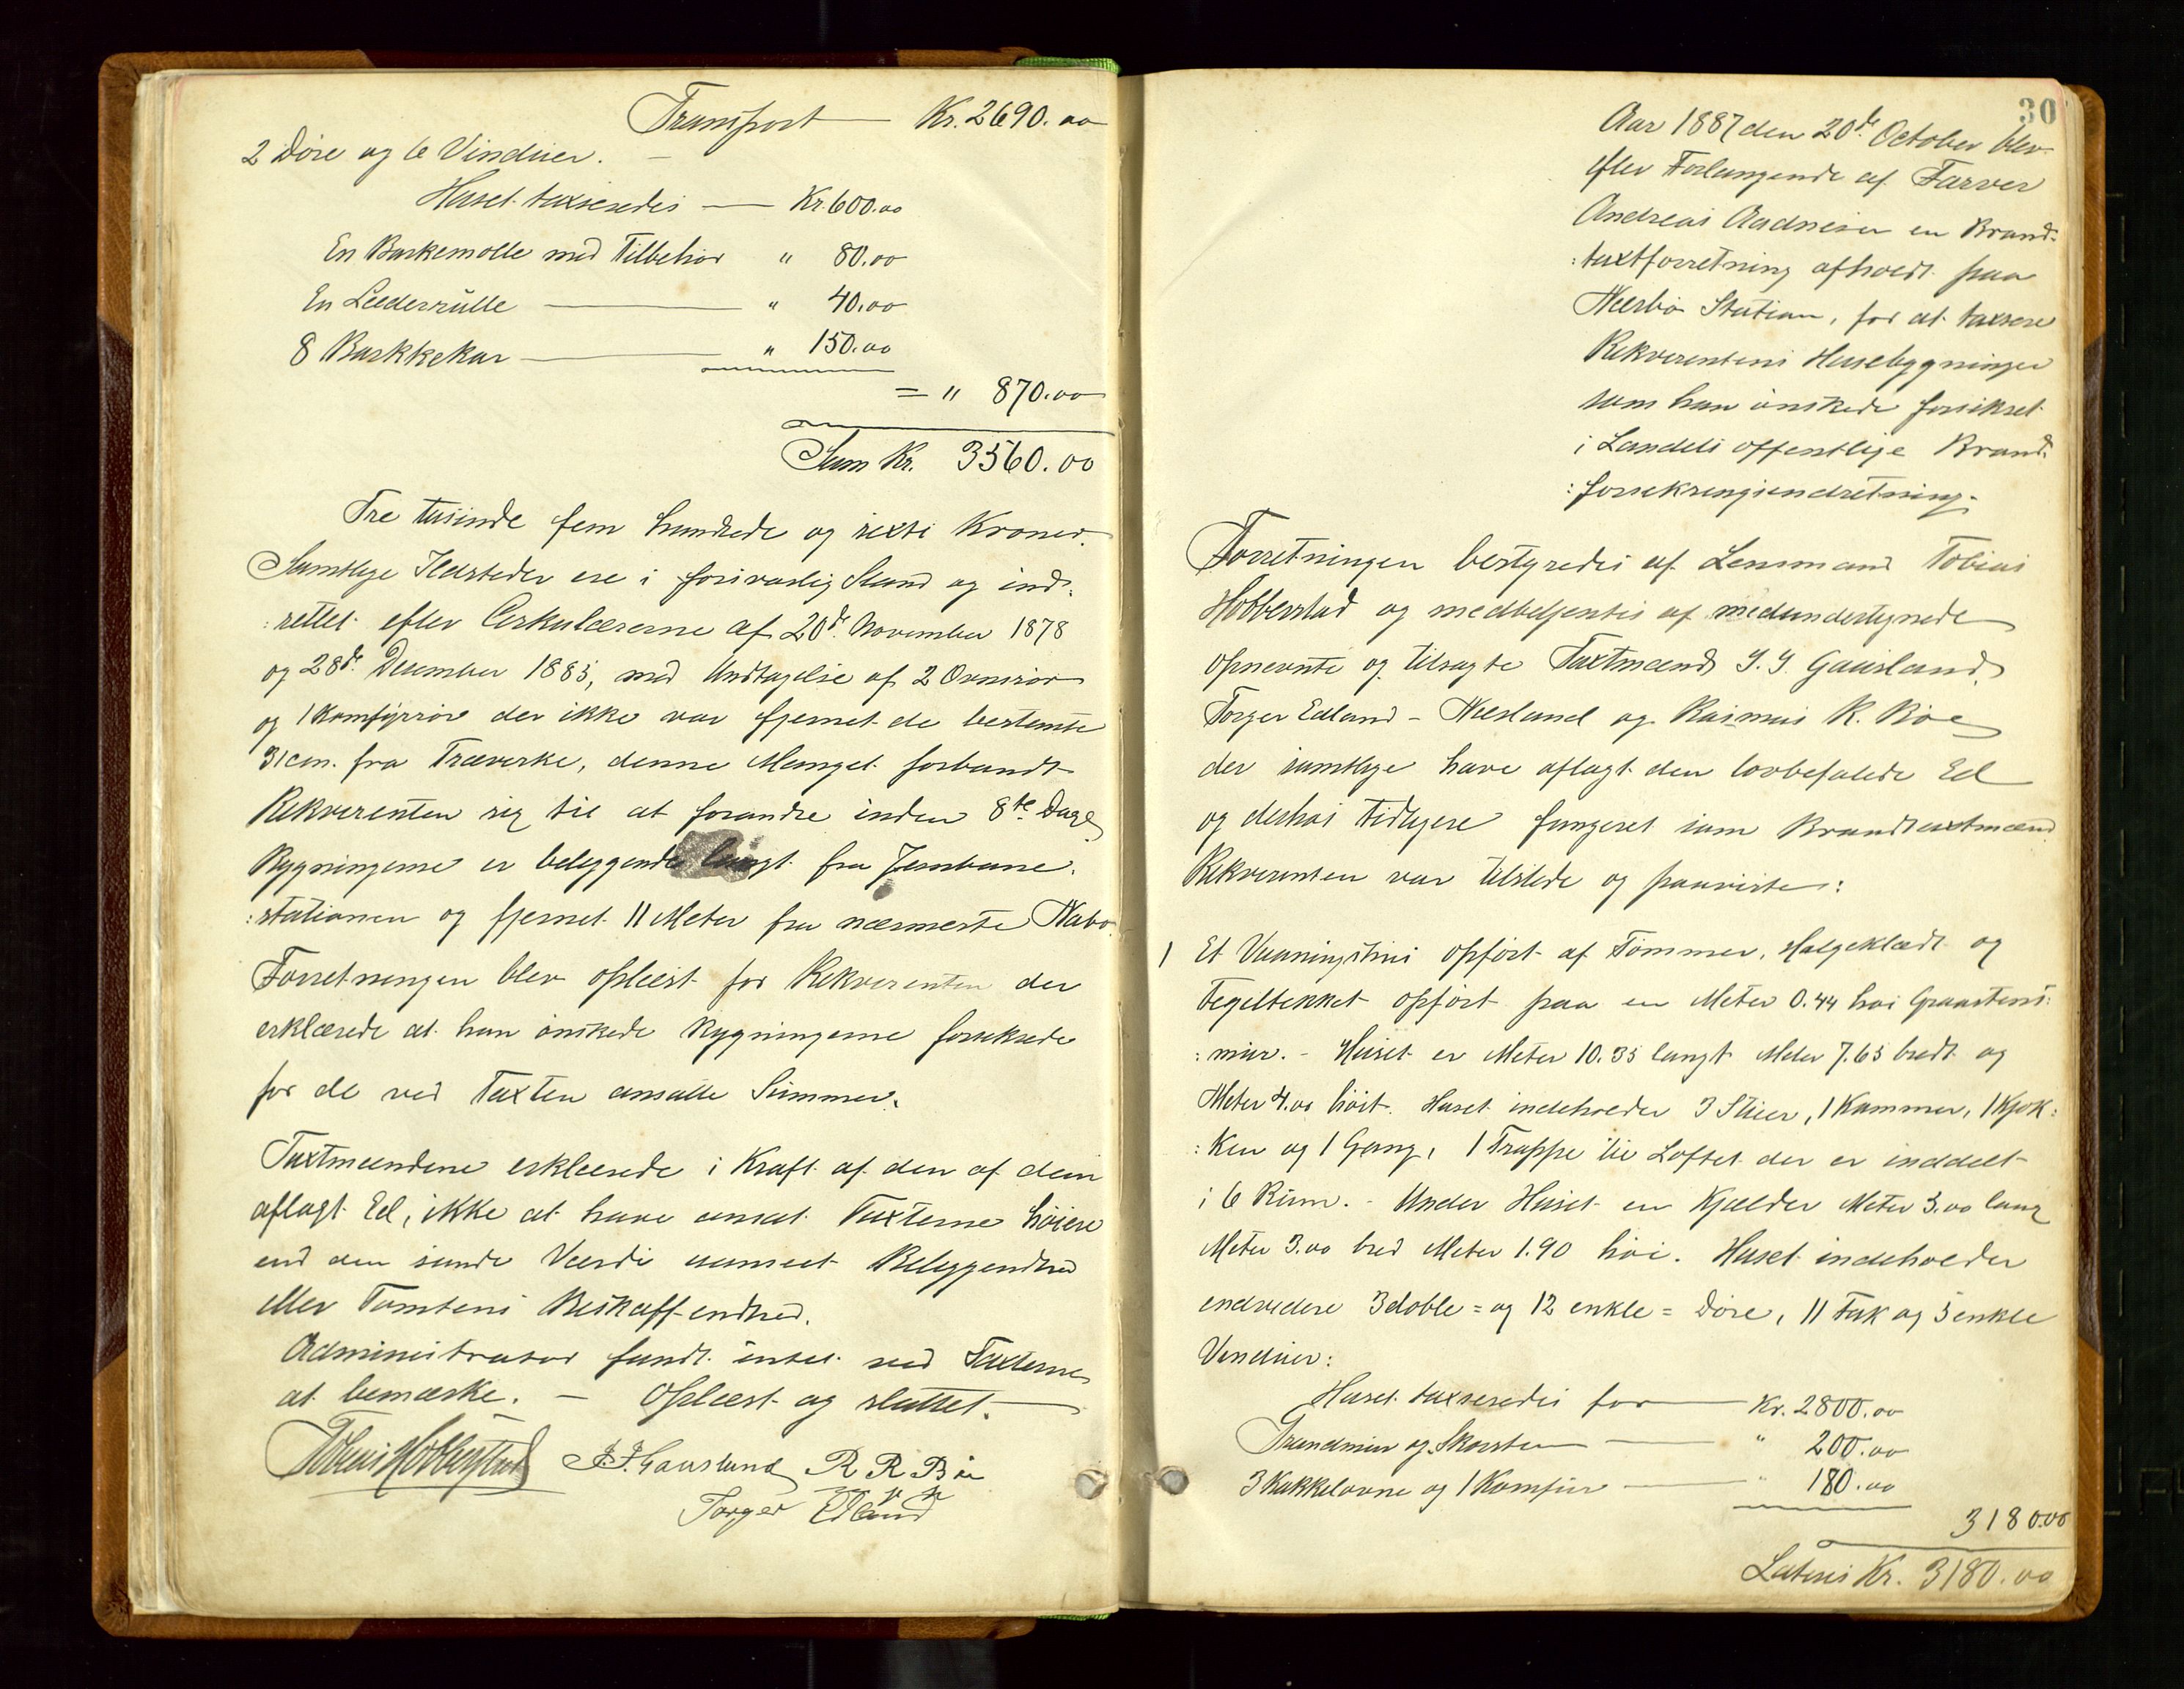 Transport — Kr. 2690.00
2 Døre og 6 Vinduer. —
Huset taxseredes — Kr. 600.00
En Barkemølle med Tilbehør " 80.00
En Læderrulle — " 40.00
8 Barkkekar — " 150.00
= " 870.00
Sum Kr. 3560.00
Tre tusinde fem hundrede og sexti Kroner.
Samtlige Ildsteder ere i forsvarlig Stand og ind:
:rettet efter Cirkulærerne af 20de November 1878
og 28de December 1885, med Undtagelse af 2 Ovnsrør
og 1 Komfyrrør der ikke var fjernet de bestemte
31 cm. fra Træverke, denne Mangel forbandt
Rekvirenten sig til at forandre inden 8te Dage
Bygningerne er beliggende langt fra Jernbane:
:stationen og fjernet 11 Meter fra nærmeste Nabo.
Forretningen blev oplæst for Rekvirenten der
erklærede at han ønskede Bygningerne forsikrede
for de ved Taxten ansatte Summer.
Taxtmændene erklærede i Kraft af den af dem
aflagt Ed, ikke at have ansat Taxterne høiere
end den sande Værdi uanseet Beliggenhed
eller Tomtens Beskaffenhed.
Administrator fandt intet ved Taxterne
at bemærke. — Oplæst og sluttet. —
Tobias Hobberstad J. J. Gausland R R Bøe
Torger Edland
30
Aar 1887 den 20de October blev
efter Forlangende af Farver
Andreas Aadnesen en Brand:
:taxtforretning afholdt paa
Nærbø Station, for at taxsere
Rekvirentens Husebygninger
som han ønskede forsikret
i Landets offentlige Brand:
:forsikringsindretning.
Forretningen bestyredes af Lensmand Tobias
Hobberstad og medbetjentes af medundertegnede
opnævnte og tilsagte Taxtmænd J. J. Gausland,
Torger Edland - Næsland og Rasmus R. Bøe
der samtlige have aflagt den lovbefalede Ed
og deshos tidligere fungeret som Brandtaxtmænd
Rekvirenten var tilstede og paaviste:
1 Et Vaaningshus opført af Tømmer, Halgeklædt og
Tegeltekket opført paa en Meter 0.44 høi Graastens:
:mur. - Huset er Meter 10.35 langt Meter 7.65 bredt og
Meter 4.00 høit. Huset indeholder 3 Stuer, 1 Kammer, 1 Kjøk:
:ken og 1 Gang, 1 Trappe til Loftet der er inddelt
i 6 Rum. - Under Huset en Kjælder Meter 3.00 lang
Meter 3.00 bred Meter 1.90 høi. Huset indeholder
endvidere 3 doble = og 12 enkle = Døre, 11 Fak og 5 enkle
Vinduer:
Huset taxseredes for — Kr. 2800.00
Grundmur og Skorsten — " 200.00
3 Kakkelovne og 1 Komfur — " 180.00
3180.00
Lateris Kr. 3180.00